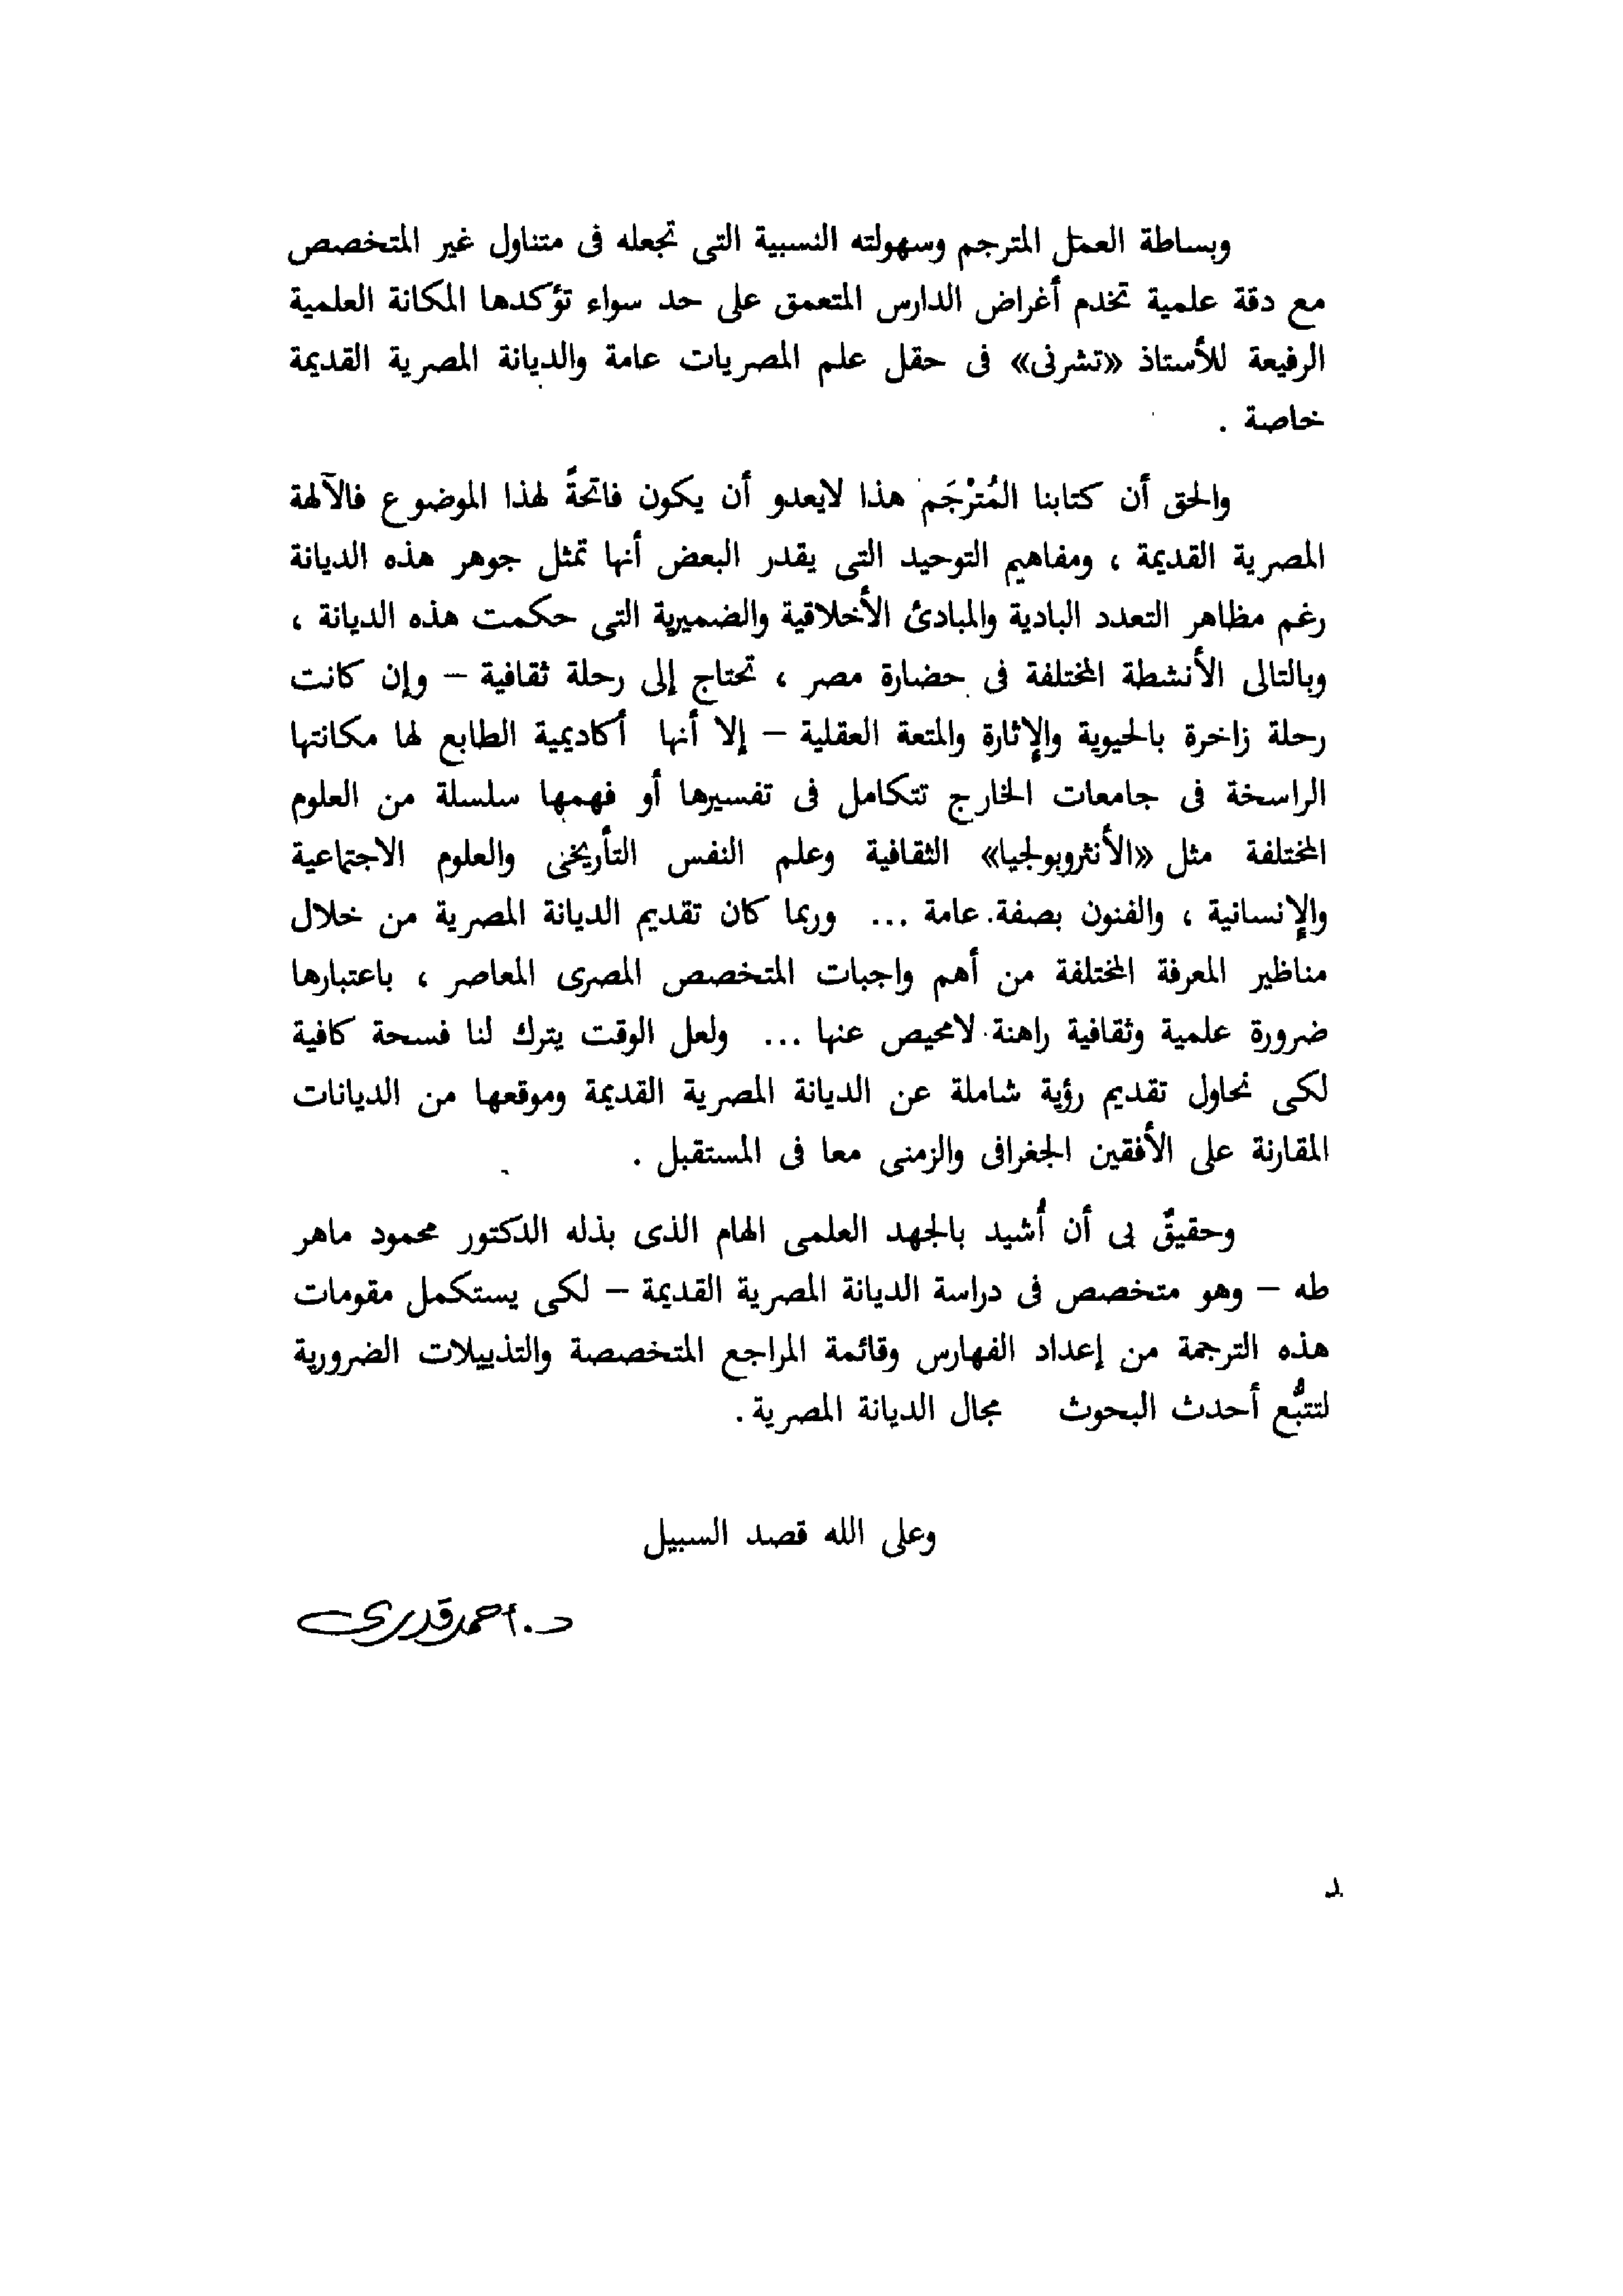 وبساطة العمل المترجم وسهولته النسبية التى تجعله فى متناول غير المتخصص
مع دقة علمية تخدم أغراض الدارس المتعمق على حد سواء تؤكدها المكانة العلمية
الرفيعة للأستاذ «تشرنى» فى حقل علم المصريات عامة والديانة المصرية القديمة
خاصة .
والحق أن كتابنا المُترْجَم هذا لايعدو أن يكون فاتحةً لهذا الموضوع فالآلهة
المصرية القديمة ، ومفاهيم التوحيد التى يقدر البعض أنها تمثل جوهر هذه الديانة
رغم مظاهر التعدد البادية والمبادئ الأخلاقية والضميرية التى حكمت هذه الديانة ،
وبالتالى الأنشطة المختلفة فى حضارة مصر ، تحتاج إلى رحلة ثقافية – وإن كانت
رحلة زاخرة بالحيوية والإثارة والمتعة العقلية – إلا أنها أكاديمية الطابع لها مكانتها
الراسخة فى جامعات الخارج تتكامل فى تفسيرها أو فهمها سلسلة من العلوم
المختلفة مثل «الأنثروبولجيا» الثقافية وعلم النفس التأريخى والعلوم الاجتماعية
والإنسانية ، والفنون بصفة عامة ... وربما كان تقديم الديانة المصرية من خلال
مناظير المعرفة المختلفة من أهم واجبات المتخصص المصرى المعاصر ، باعتبارها
ضرورة علمية وثقافية راهنة لامحيص عنها ... ولعل الوقت يترك لنا فسحة كافية
لكى نحاول تقديم رؤية شاملة عن الديانة المصرية القديمة وموقعها من الديانات
المقارنة على الأفقين الجغرافى والزمنى معا فى المستقبل .
وحقيقٌ بى أن أُشيد بالجهد العلمى الهام الذى بذله الدكتور محمود ماهر
طه – وهو متخصص فى دراسة الديانة المصرية القديمة – لكى يستكمل مقومات
هذه الترجمة من إعداد الفهارس وقائمة المراجع المتخصصة والتذييلات الضرورية
لتتبُّع أحدث البحوث مجال الديانة المصرية .
وعلى الله قصد السبيل
د. أحمد قدرى
د